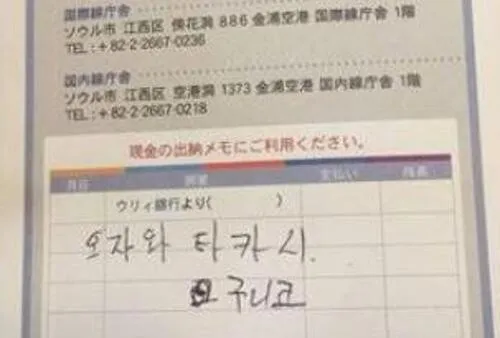 国際線庁舎
ソウル市 江西区 傍花洞 886 金浦空港 国際線庁舎 1階
TEL : + 82-2-2667-0236
国内線庁舎
ソウル市 江西区 空港洞 1373 金浦空港 国内線庁舎 1階
TEL : + 82-2-2667-0218
現金の出納メモにご利用ください。
月日 摘要 支払い 残高
ウリィ銀行より( )
오자와 타카시.
구니코